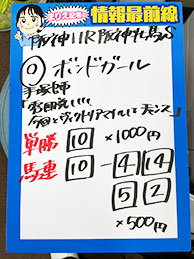 まりえ記者 情報最前線
阪神11R 阪神牝馬S
◎ ボンドガール
手塚師
「雰囲気いい。
今回とヴィクトリアマイルはチャンス」
単勝 10 ×1000円
馬連 10 - 4 14
5 2
×500円